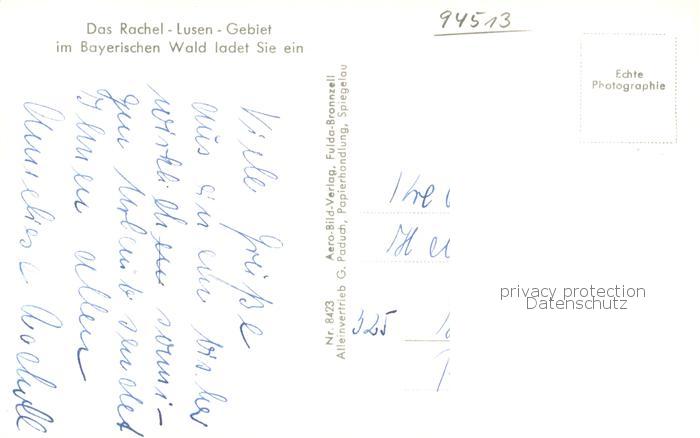 94513
Das Rachel - Lusen - Gebiet
im Bayerischen Wald ladet Sie ein
Viele Grüße
aus einem bisher
wirklichen sonni-
gen Urlaub sendet
Ihnen allen
Annelies
Nr. 8423 Aero-Bild-Verlag, Fulda-Bronnzell
Alleinvertrieb G. Paduch, Papierhandlung, Spiegelau
Echte
Photographie
325
privacy protection
Datenschutz